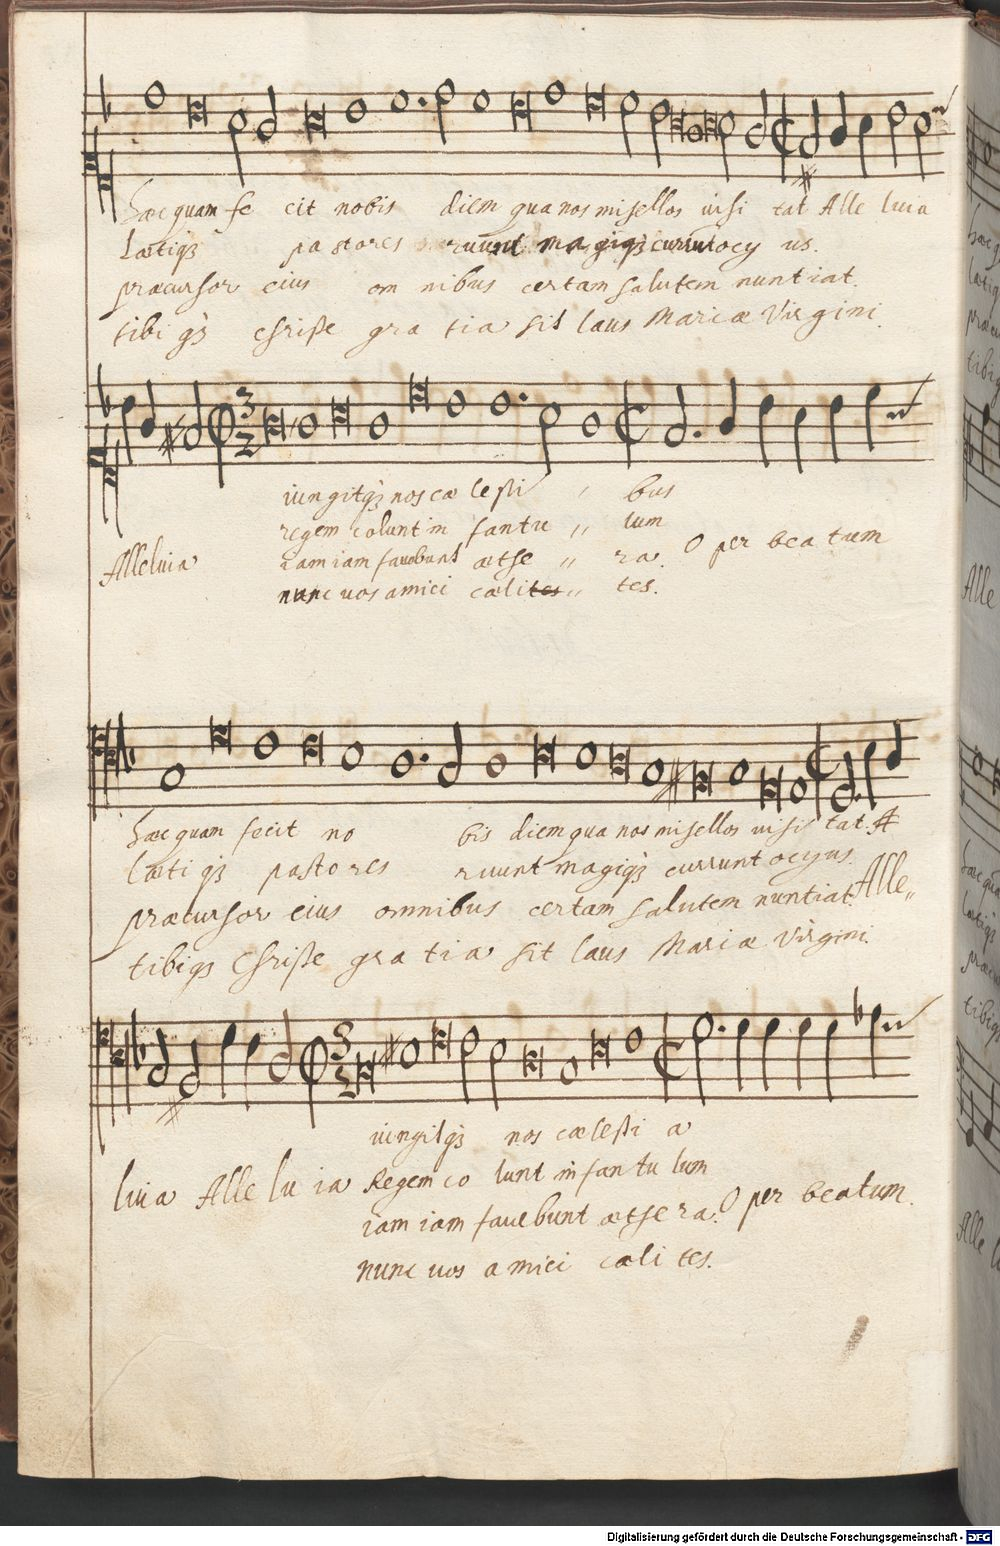 hæc quam fe cit nobis diem qua nos misellos visi tat Alle luia
lætiq3 pastores ruunt magiq3 currunt ocy us.
præcursor eius om nibus certam salutem nuntiat.
tibi q3 christe gra tia sit laus Mariæ Virgini.
iungitq3 nos cæ lesti bus
regem colunt in fantu lum
Alleluia iam iam favebunt æthe ra. O per bea tum
nunc vos amici cæli tes.
hæc quam fecit no bis diem qua nos misellos visi tat. A
læti q3 pasto res ruunt magiq3 currunt ocyus.
præcursor eius omnibus certam salutem nuntiat. Alle
tibiq3 Christe gra tia sit laus Mariæ Virgini.
iungitq3 nos cælesti a
luia Alle lu ia Regem co lunt in fan tu lum
iam iam favebunt æthera. O per beatum.
nunc vos amici cæli tes.
Digitalisierung gefördert durch die Deutsche Forschungsgemeinschaft - DFG